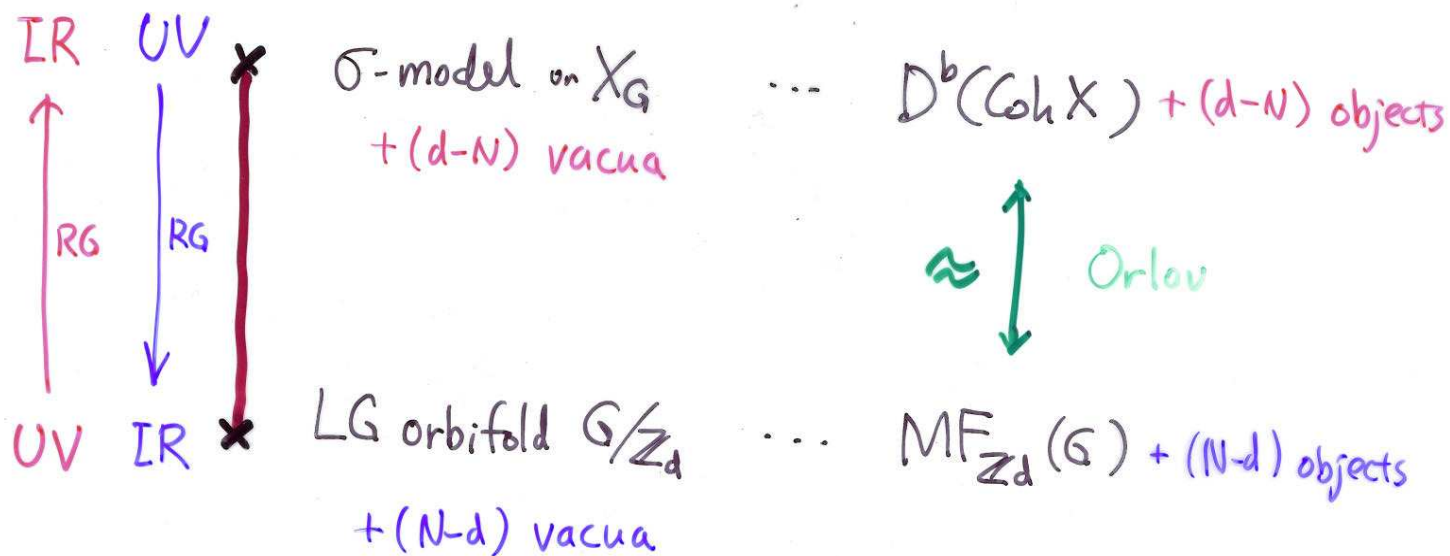 IR UV
σ-model on X_G ... D^b(Coh X) + (d-N) objects
+ (d-N) vacua
RG RG
≈ Orlov
UV IR
LG orbifold G/ℤ_d ... MF_{ℤ_d}(G) + (N-d) objects
+ (N-d) vacua